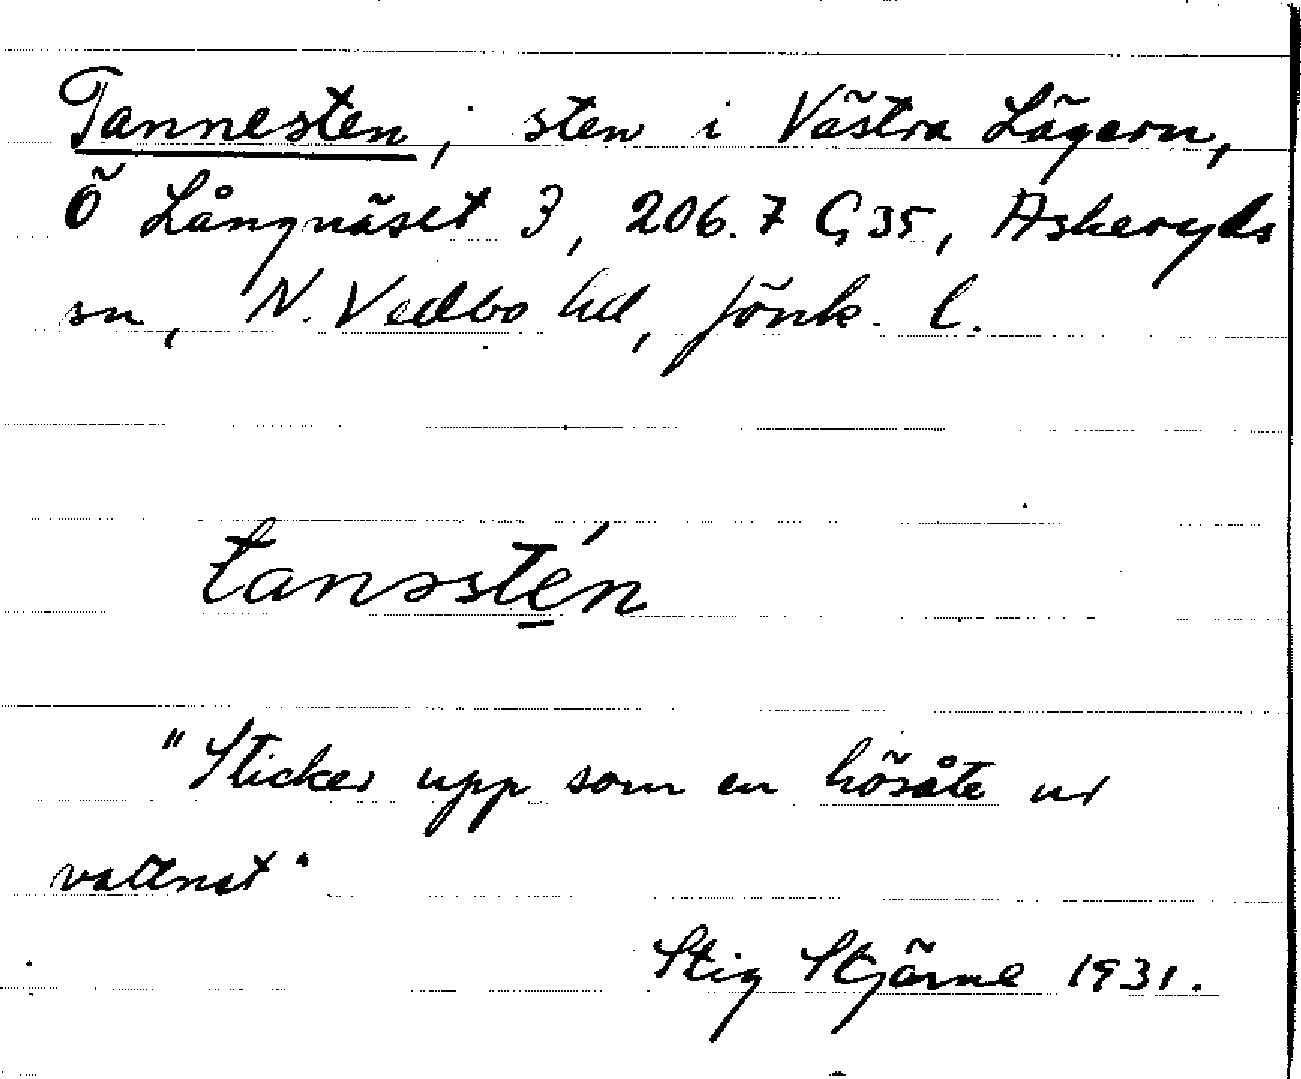 Tannesten, sten i Västra Lägern,
Ö Långnäset 3, 206.7 G 35, Askeryds
sn, N. Vedbo hd, Jönk. l.
tanəstén
"Sticker upp som en hösåte ur
vattnet"
Stig Stjärne 1931.